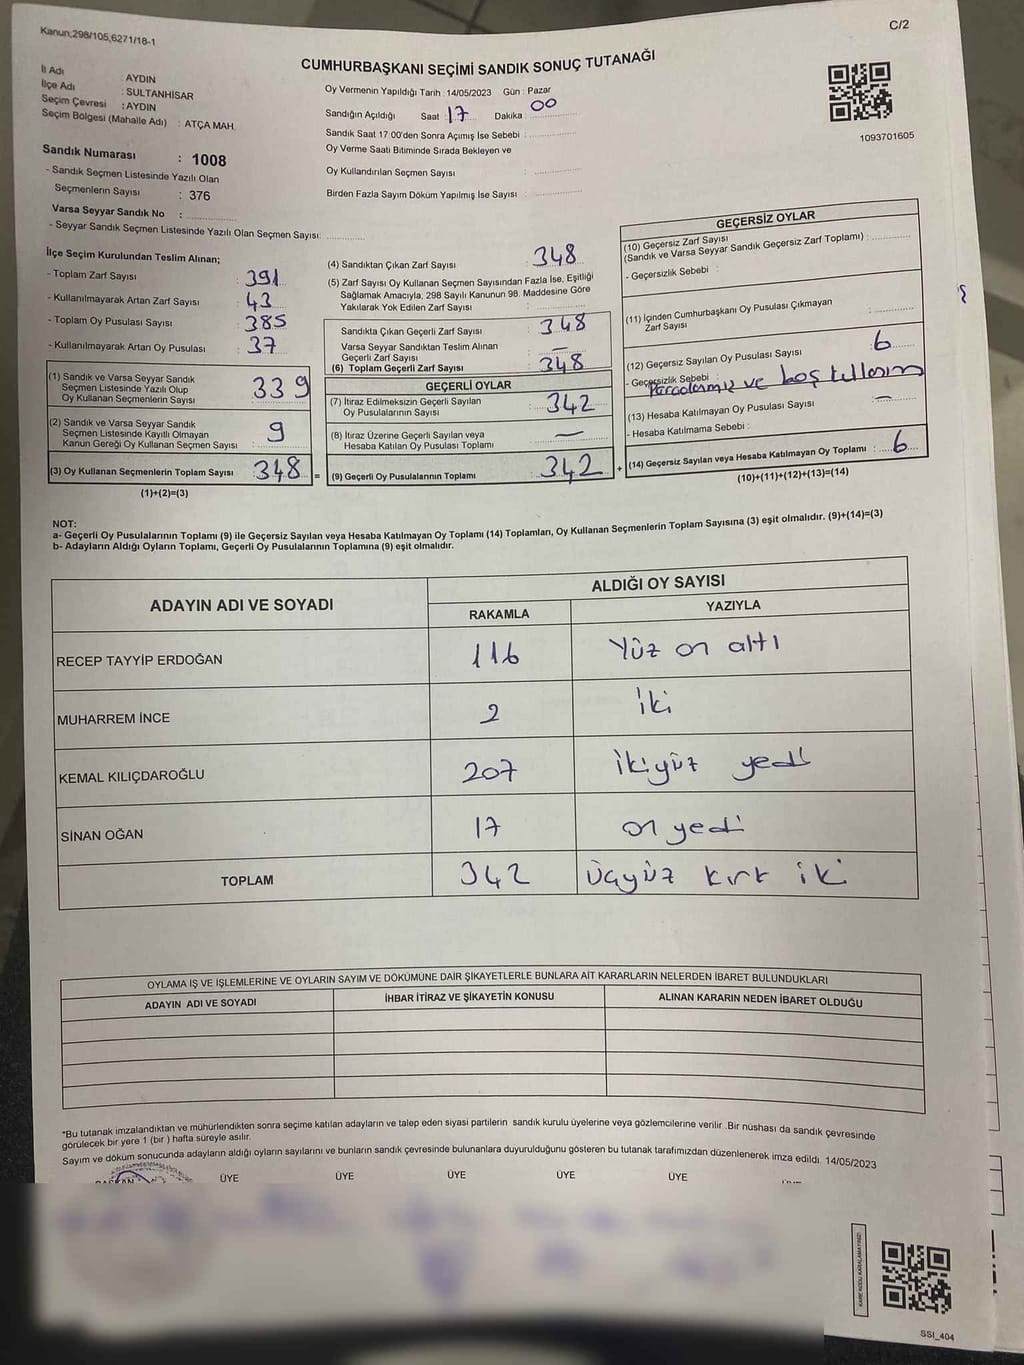 Kanun,298/105,6271/18-1
C/2
CUMHURBAŞKANI SEÇİMİ SANDIK SONUÇ TUTANAĞI
İl Adı : AYDIN
İlçe Adı : SULTANHİSAR
Seçim Çevresi : AYDIN
Seçim Bölgesi (Mahalle Adı) : ATÇA MAH.
Oy Vermenin Yapıldığı Tarih : 14/05/2023 Gün : Pazar
Sandığın Açıldığı Saat : 17 Dakika : 00
Sandık Saat 17:00'den Sonra Açımış İse Sebebi :
Oy Verme Saati Bitiminde Sırada Bekleyen ve
Oy Kullandırılan Seçmen Sayısı :
Birden Fazla Sayım Döküm Yapılmış İse Sayısı :
1093701605
Sandık Numarası : 1008
- Sandık Seçmen Listesinde Yazılı Olan
Seçmenlerin Sayısı : 376
Varsa Seyyar Sandık No :
- Seyyar Sandık Seçmen Listesinde Yazılı Olan Seçmen Sayısı:
İlçe Seçim Kurulundan Teslim Alınan;
- Toplam Zarf Sayısı : 391
- Kullanılmayarak Artan Zarf Sayısı : 43
- Toplam Oy Pusulası Sayısı : 385
- Kullanılmayarak Artan Oy Pusulası : 37
(1) Sandık ve Varsa Seyyar Sandık
Seçmen Listesinde Yazılı Olup
Oy Kullanan Seçmenlerin Sayısı : 339
(2) Sandık ve Varsa Seyyar Sandık
Seçmen Listesinde Kayıtlı Olmayan
Kanun Gereği Oy Kullanan Seçmen Sayısı : 9
(3) Oy Kullanan Seçmenlerin Toplam Sayısı : 348 =
(1)+(2)=(3)
(4) Sandıktan Çıkan Zarf Sayısı : 348
(5) Zarf Sayısı Oy Kullanan Seçmen Sayısından Fazla İse, Eşitliği
Sağlamak Amacıyla, 298 Sayılı Kanunun 98. Maddesine Göre
Yakılarak Yok Edilen Zarf Sayısı :
Sandıkta Çıkan Geçerli Zarf Sayısı : 348
Varsa Seyyar Sandıktan Teslim Alınan
Geçerli Zarf Sayısı : —
(6) Toplam Geçerli Zarf Sayısı : 348
GEÇERLİ OYLAR
(7) İtiraz Edilmeksizin Geçerli Sayılan
Oy Pusulalarının Sayısı : 342
(8) İtiraz Üzerine Geçerli Sayılan veya
Hesaba Katılan Oy Pusulası Toplamı : —
(9) Geçerli Oy Pusulalarının Toplamı : 342 +
GEÇERSİZ OYLAR
(10) Geçersiz Zarf Sayısı
(Sandık ve Varsa Seyyar Sandık Geçersiz Zarf Toplamı) :
- Geçersizlik Sebebi :
(11) İçinden Cumhurbaşkanı Oy Pusulası Çıkmayan
Zarf Sayısı :
(12) Geçersiz Sayılan Oy Pusulası Sayısı : 6
- Geçersizlik Sebebi : ve boş
(13) Hesaba Katılmayan Oy Pusulası Sayısı : —
- Hesaba Katılmama Sebebi :
(14) Geçersiz Sayılan veya Hesaba Katılmayan Oy Toplamı : 6
(10)+(11)+(12)+(13)=(14)
NOT:
a- Geçerli Oy Pusulalarının Toplamı (9) ile Geçersiz Sayılan veya Hesaba Katılmayan Oy Toplamı (14) Toplamları, Oy Kullanan Seçmenlerin Toplam Sayısına (3) eşit olmalıdır. (9)+(14)=(3)
b- Adayların Aldığı Oyların Toplamı, Geçerli Oy Pusulalarının Toplamına (9) eşit olmalıdır.
ADAYIN ADI VE SOYADI
ALDIĞI OY SAYISI
RAKAMLA YAZIYLA
RECEP TAYYİP ERDOĞAN 116 Yüz on altı
MUHARREM İNCE 2 iki
KEMAL KILIÇDAROĞLU 207 ikiyüz yedi
SİNAN OĞAN 17 on yedi
TOPLAM 342 üçyüz kırk iki
OYLAMA İŞ VE İŞLEMLERİNE VE OYLARIN SAYIM VE DÖKÜMÜNE DAİR ŞİKAYETLERLE BUNLARA AİT KARARLARIN NELERDEN İBARET BULUNDUKLARI
ADAYIN ADI VE SOYADI İHBAR İTİRAZ VE ŞİKAYETİN KONUSU ALINAN KARARIN NEDEN İBARET OLDUĞU
*Bu tutanak imzalandıktan ve mühürlendikten sonra seçime katılan adayların ve talep eden siyasi partilerin sandık kurulu üyelerine veya gözlemcilerine verilir. Bir nüshası da sandık çevresinde
görülecek bir yere 1 (bir ) hafta süreyle asılır.
Sayım ve döküm sonucunda adayların aldığı oyların sayılarını ve bunların sandık çevresinde bulunanlara duyurulduğunu gösteren bu tutanak tarafımızdan düzenlenerek imza edildi. 14/05/2023
BAŞKAN ÜYE ÜYE ÜYE ÜYE ÜYE
KARE KODU KARALAMAYINIZ!
SSI_404